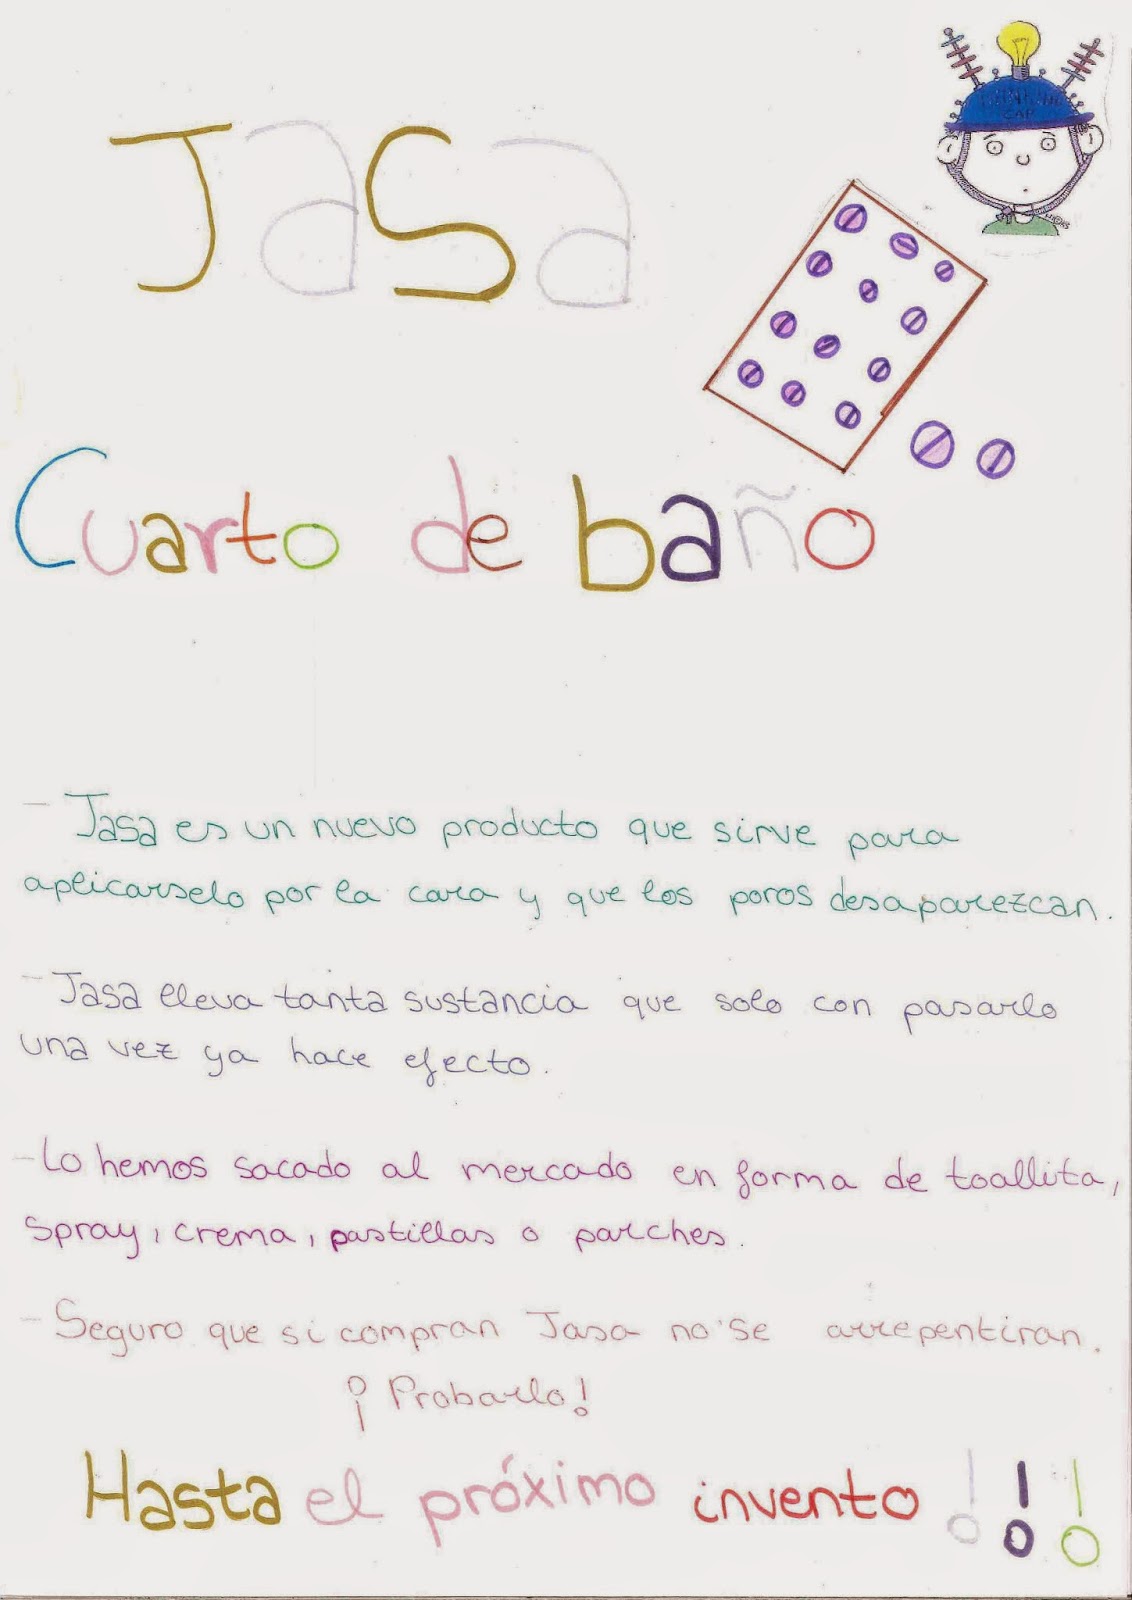 CAP
Jasa
Cuarto de baño
- Jasa es un nuevo producto que sirve para
aplicarselo por la cara y que los poros desaparezcan.
- Jasa lleva tanta sustancia que solo con pasarlo
una vez ya hace efecto.
- Lo hemos sacado al mercado en forma de toallita,
spray, crema, pastillas o parches.
- Seguro que si compran Jasa no se arrepentiran.
¡Probarlo!
Hasta el próximo invento!!!